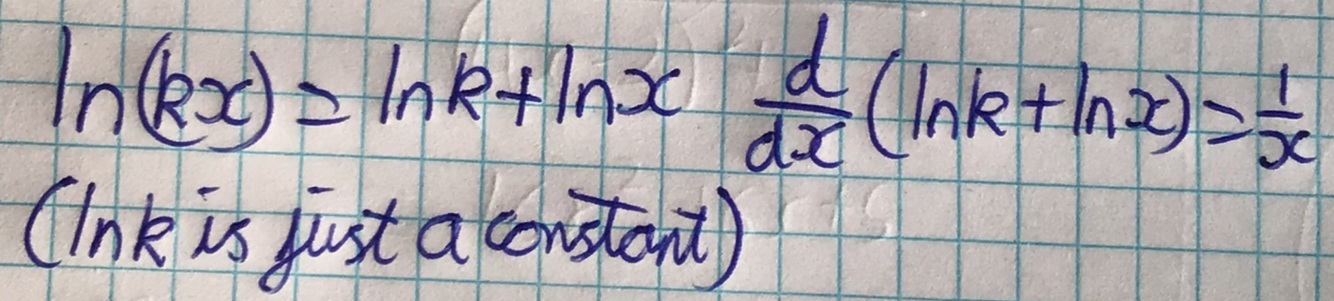 ln(kx) = lnk + lnx d/dx (lnk + lnx) = 1/x
(lnk is just a constant)